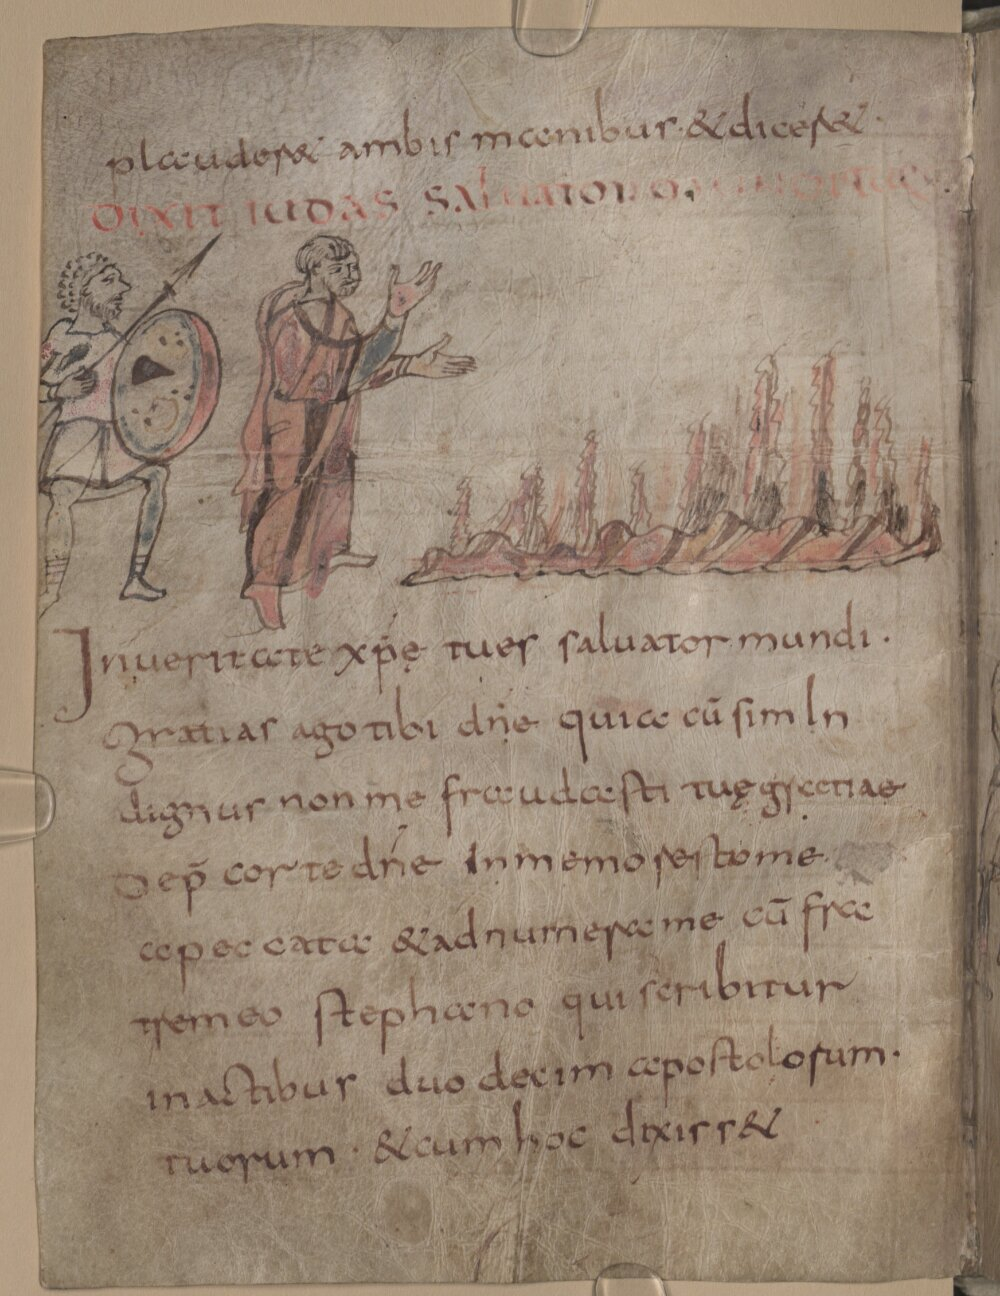 plauderet ambis manibus · & diceret ·
DIXIT IUDAS SALUATOR
Inueritate xp̄ę tues saluator mundi ·
gratias ago tibi dn̄e quia cū sim In
dignus non me fraudasti tuę gratiae
Dep̄cor te dn̄e In memorestome
apeccata & adnumerame cū fra
tremeo stephano qui scribitur
inactibus duodecim apostolorum ·
tuorum · & cum hoc dixiss&